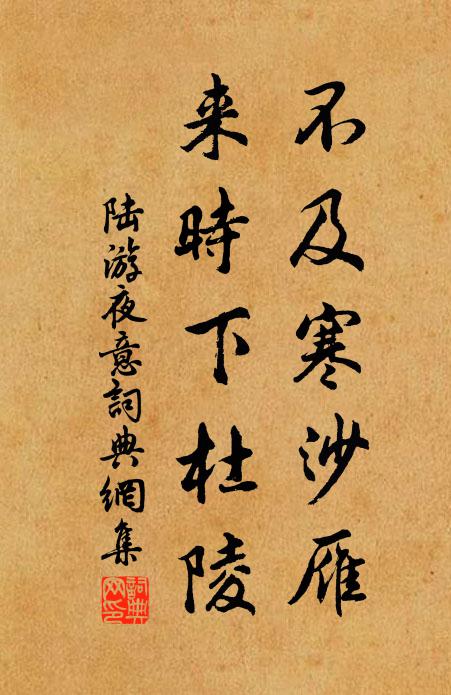 不及寒沙雁
来時下杜陵
陆游夜意詞典網集
詞典网印